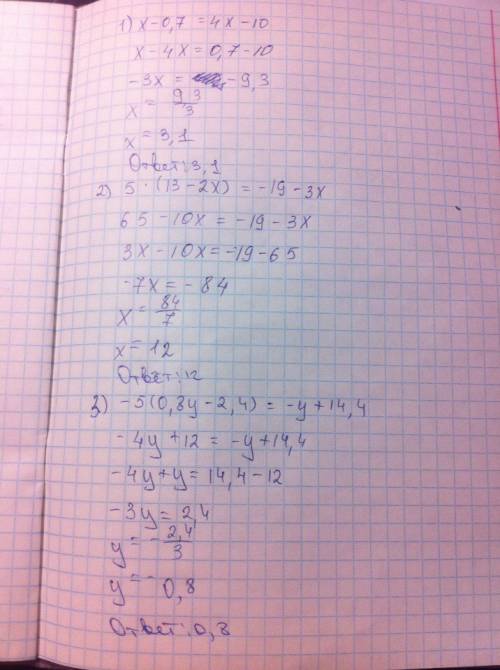 1) x-0,7 = 4x-10
x-4x=0,7-10
-3x = -9,3
x = 9,3/3
x = 3,1
Ответ: 3,1
2) 5·(13-2x) = -19-3x
65-10x = -19-3x
3x-10x=-19-65
-7x=-84
x = 84/7
x = 12
Ответ: 12
3) -5(0,8y-2,4) = -y+14,4
-4y+12 = -y+14,4
-4y+y= 14,4-12
-3y = 2,4
y = -2,4/3
y = -0,8
Ответ: 0,8